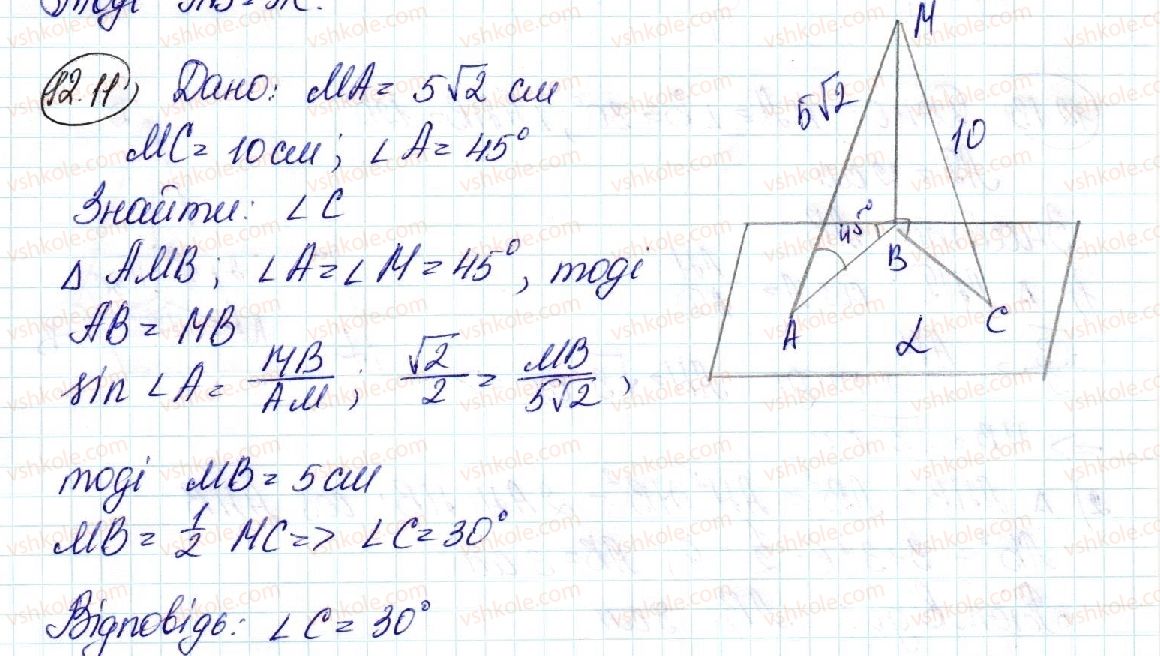 тоді MB = MC.
12.11) Дано: MA = 5√2 см
MC = 10 см; ∠A = 45°
Знайти: ∠C
Δ AMB; ∠A = ∠M = 45°, тоді
AB = MB
sin ∠A = MB/AM; √2/2 = MB/5√2,
тоді MB = 5 см
MB = 1/2 MC => ∠C = 30°
Відповідь: ∠C = 30°
M
5√2
10
45°
B
A
C
α
vshkole.com